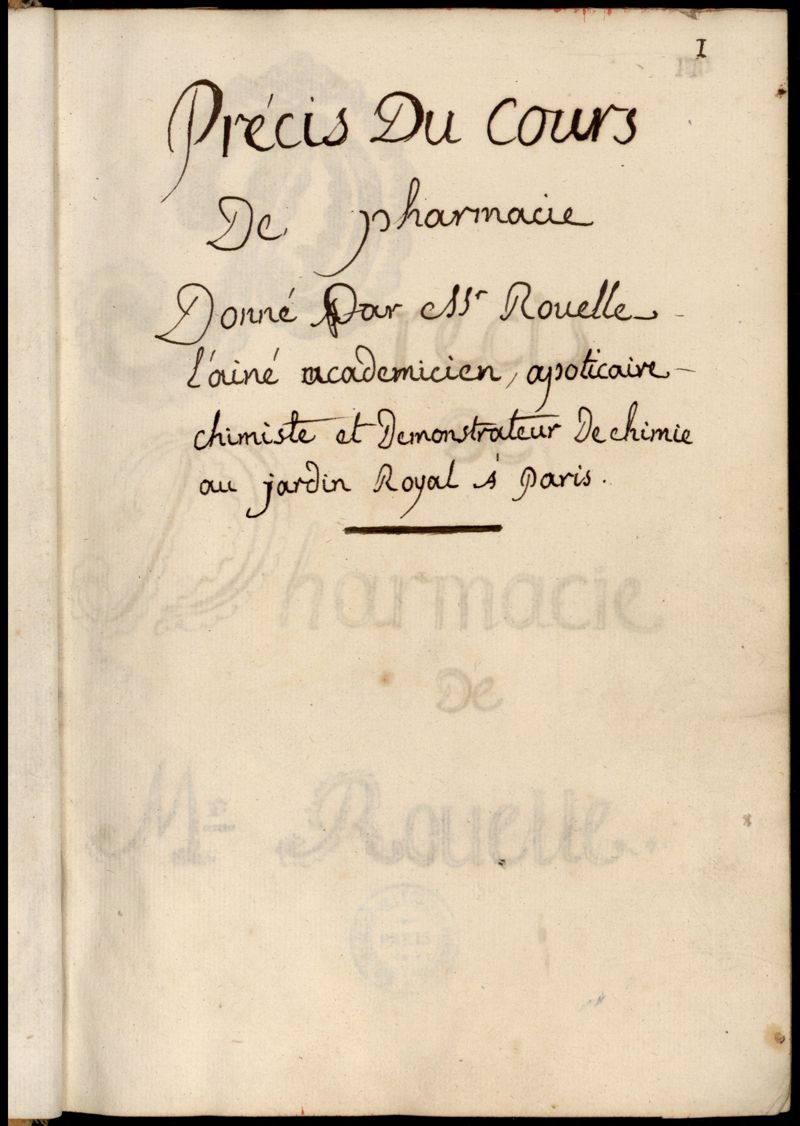 I
Précis Du Cours
De pharmacie
Donné Par Mr Rouelle
l'ainé academicien, apoticaire
chimiste et Demonstrateur De chimie
au jardin Royal A Paris.
Pharmacie
De
Mr Rouelle.
PARIS